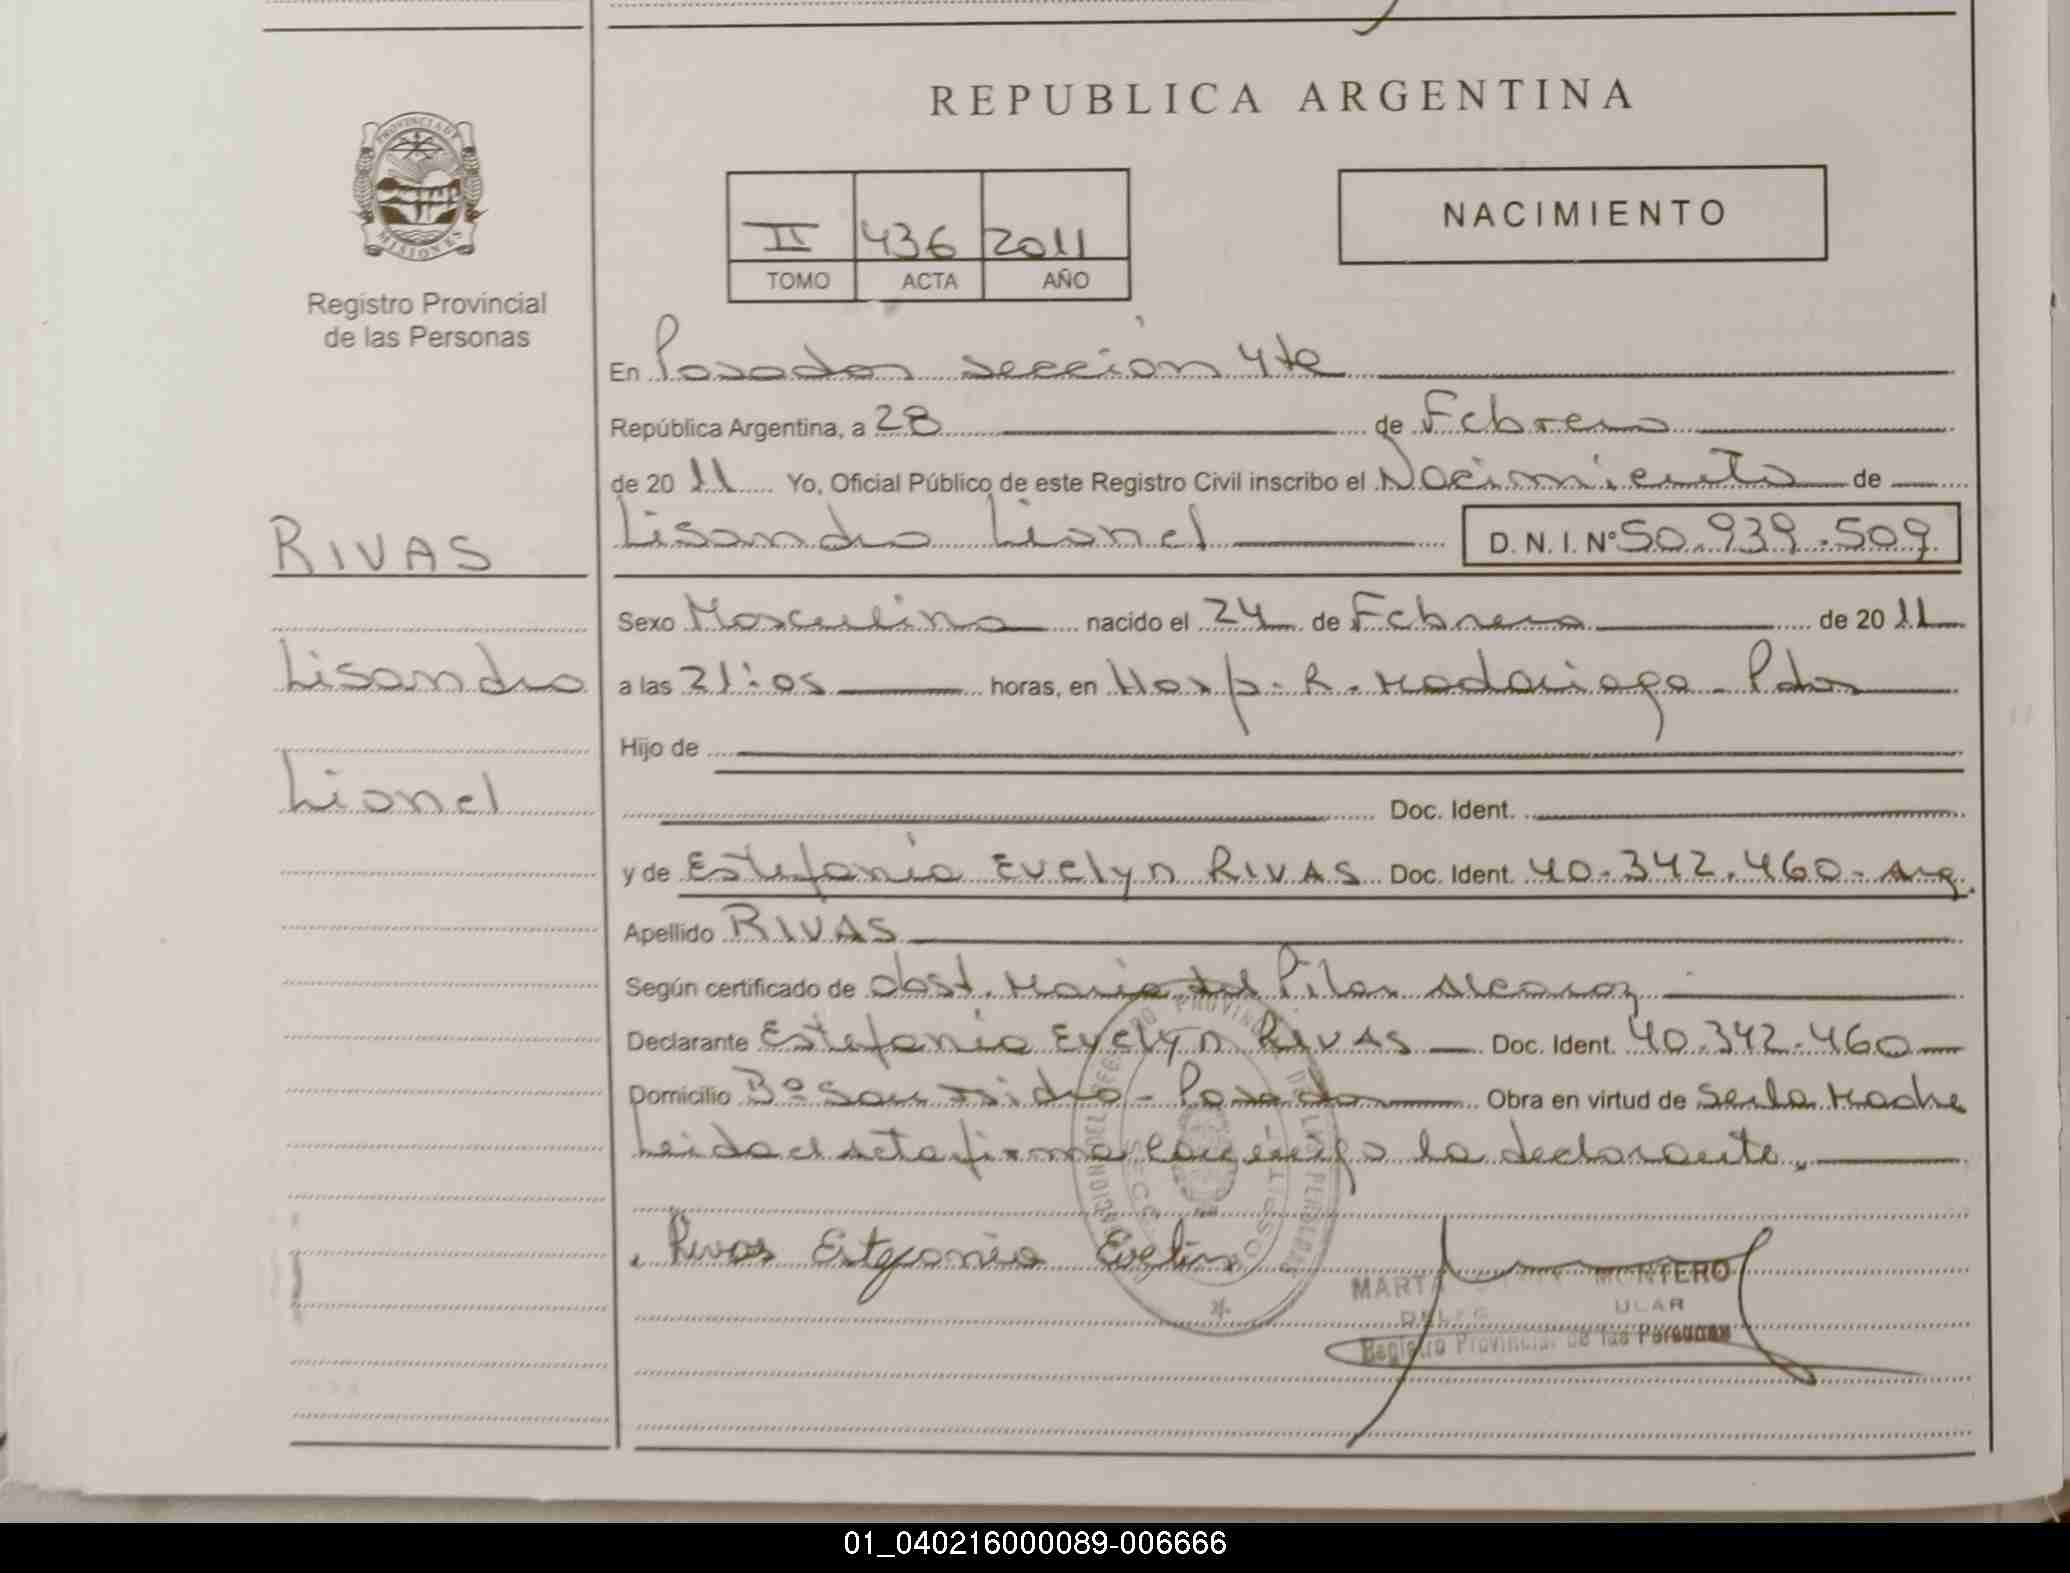 PROVINCIA DE
MISIONES
Registro Provincial
de las Personas
RIVAS
Lisandro
Lionel
REPUBLICA ARGENTINA
II 436 2011
TOMO ACTA AÑO
NACIMIENTO
En Posadas sección 4ta
República Argentina, a 28 de Febrero
de 20 11 Yo, Oficial Público de este Registro Civil inscribo el Nacimiento de
Lisandro Lionel D. N. I. N° 50.939.509
Sexo Masculino nacido el 24 de Febrero de 20 11
a las 21:05 horas, en Hosp. R. Madariaga - Pdas
Hijo de
Doc. Ident.
y de Estefanía Evelyn RIVAS Doc. Ident. 40.342.460- Arg.
Apellido RIVAS
Según certificado de Obst. María del Pilar Alcaraz
Declarante Estefanía Evelyn RIVAS Doc. Ident. 40.342.460
Domicilio Bº San Isidro - Posadas Obra en virtud de Ser la Madre
Leida el acta firma conmigo la declarante.
Rivas Estefania Evelin
MARTA MONTERO
Registro Provincial de las Personas
01_040216000089-006666